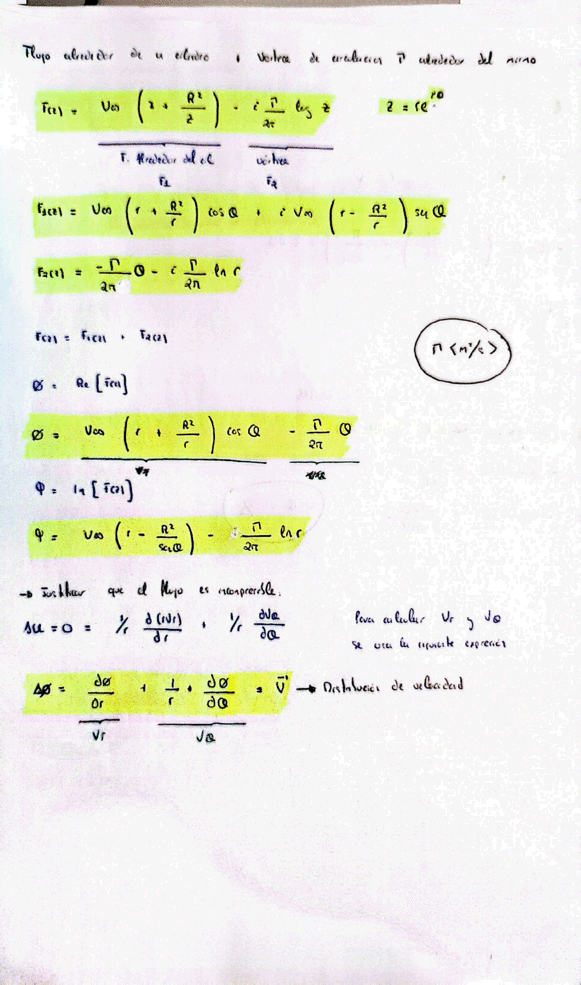 Flujo alrededor de un cilindro + vortice de circulacion Γ alrededor del mismo
F(z) = V∞ (z + R²/z) - i Γ/2π log z    z = re^iθ
F. Alrededor del cil    vórtice
F₁    F₂
F₁(z) = V∞ (r + R²/r) cos θ + i V∞ (r - R²/r) sen θ
F₂(z) = -Γ/2π θ - i Γ/2π ln r
F(z) = F₁(z) + F₂(z)
Γ <m²/s>
Ø = Re [F(z)]
Ø = V∞ (r + R²/r) cos θ - Γ/2π θ
φ = Im [F(z)]
φ = V∞ (r - R²/senθ) - Γ/2π ln r
→ Justificar que el flujo es incompresible.
Δu = 0 = 1/r d(rVr)/dr + 1/r dVθ/dθ
Para calcular Vr y Vθ
se usa la siguiente expresión
ΔØ = dØ/dr + 1/r + dØ/dθ = V → Distribución de velocidad
Vr    Vθ